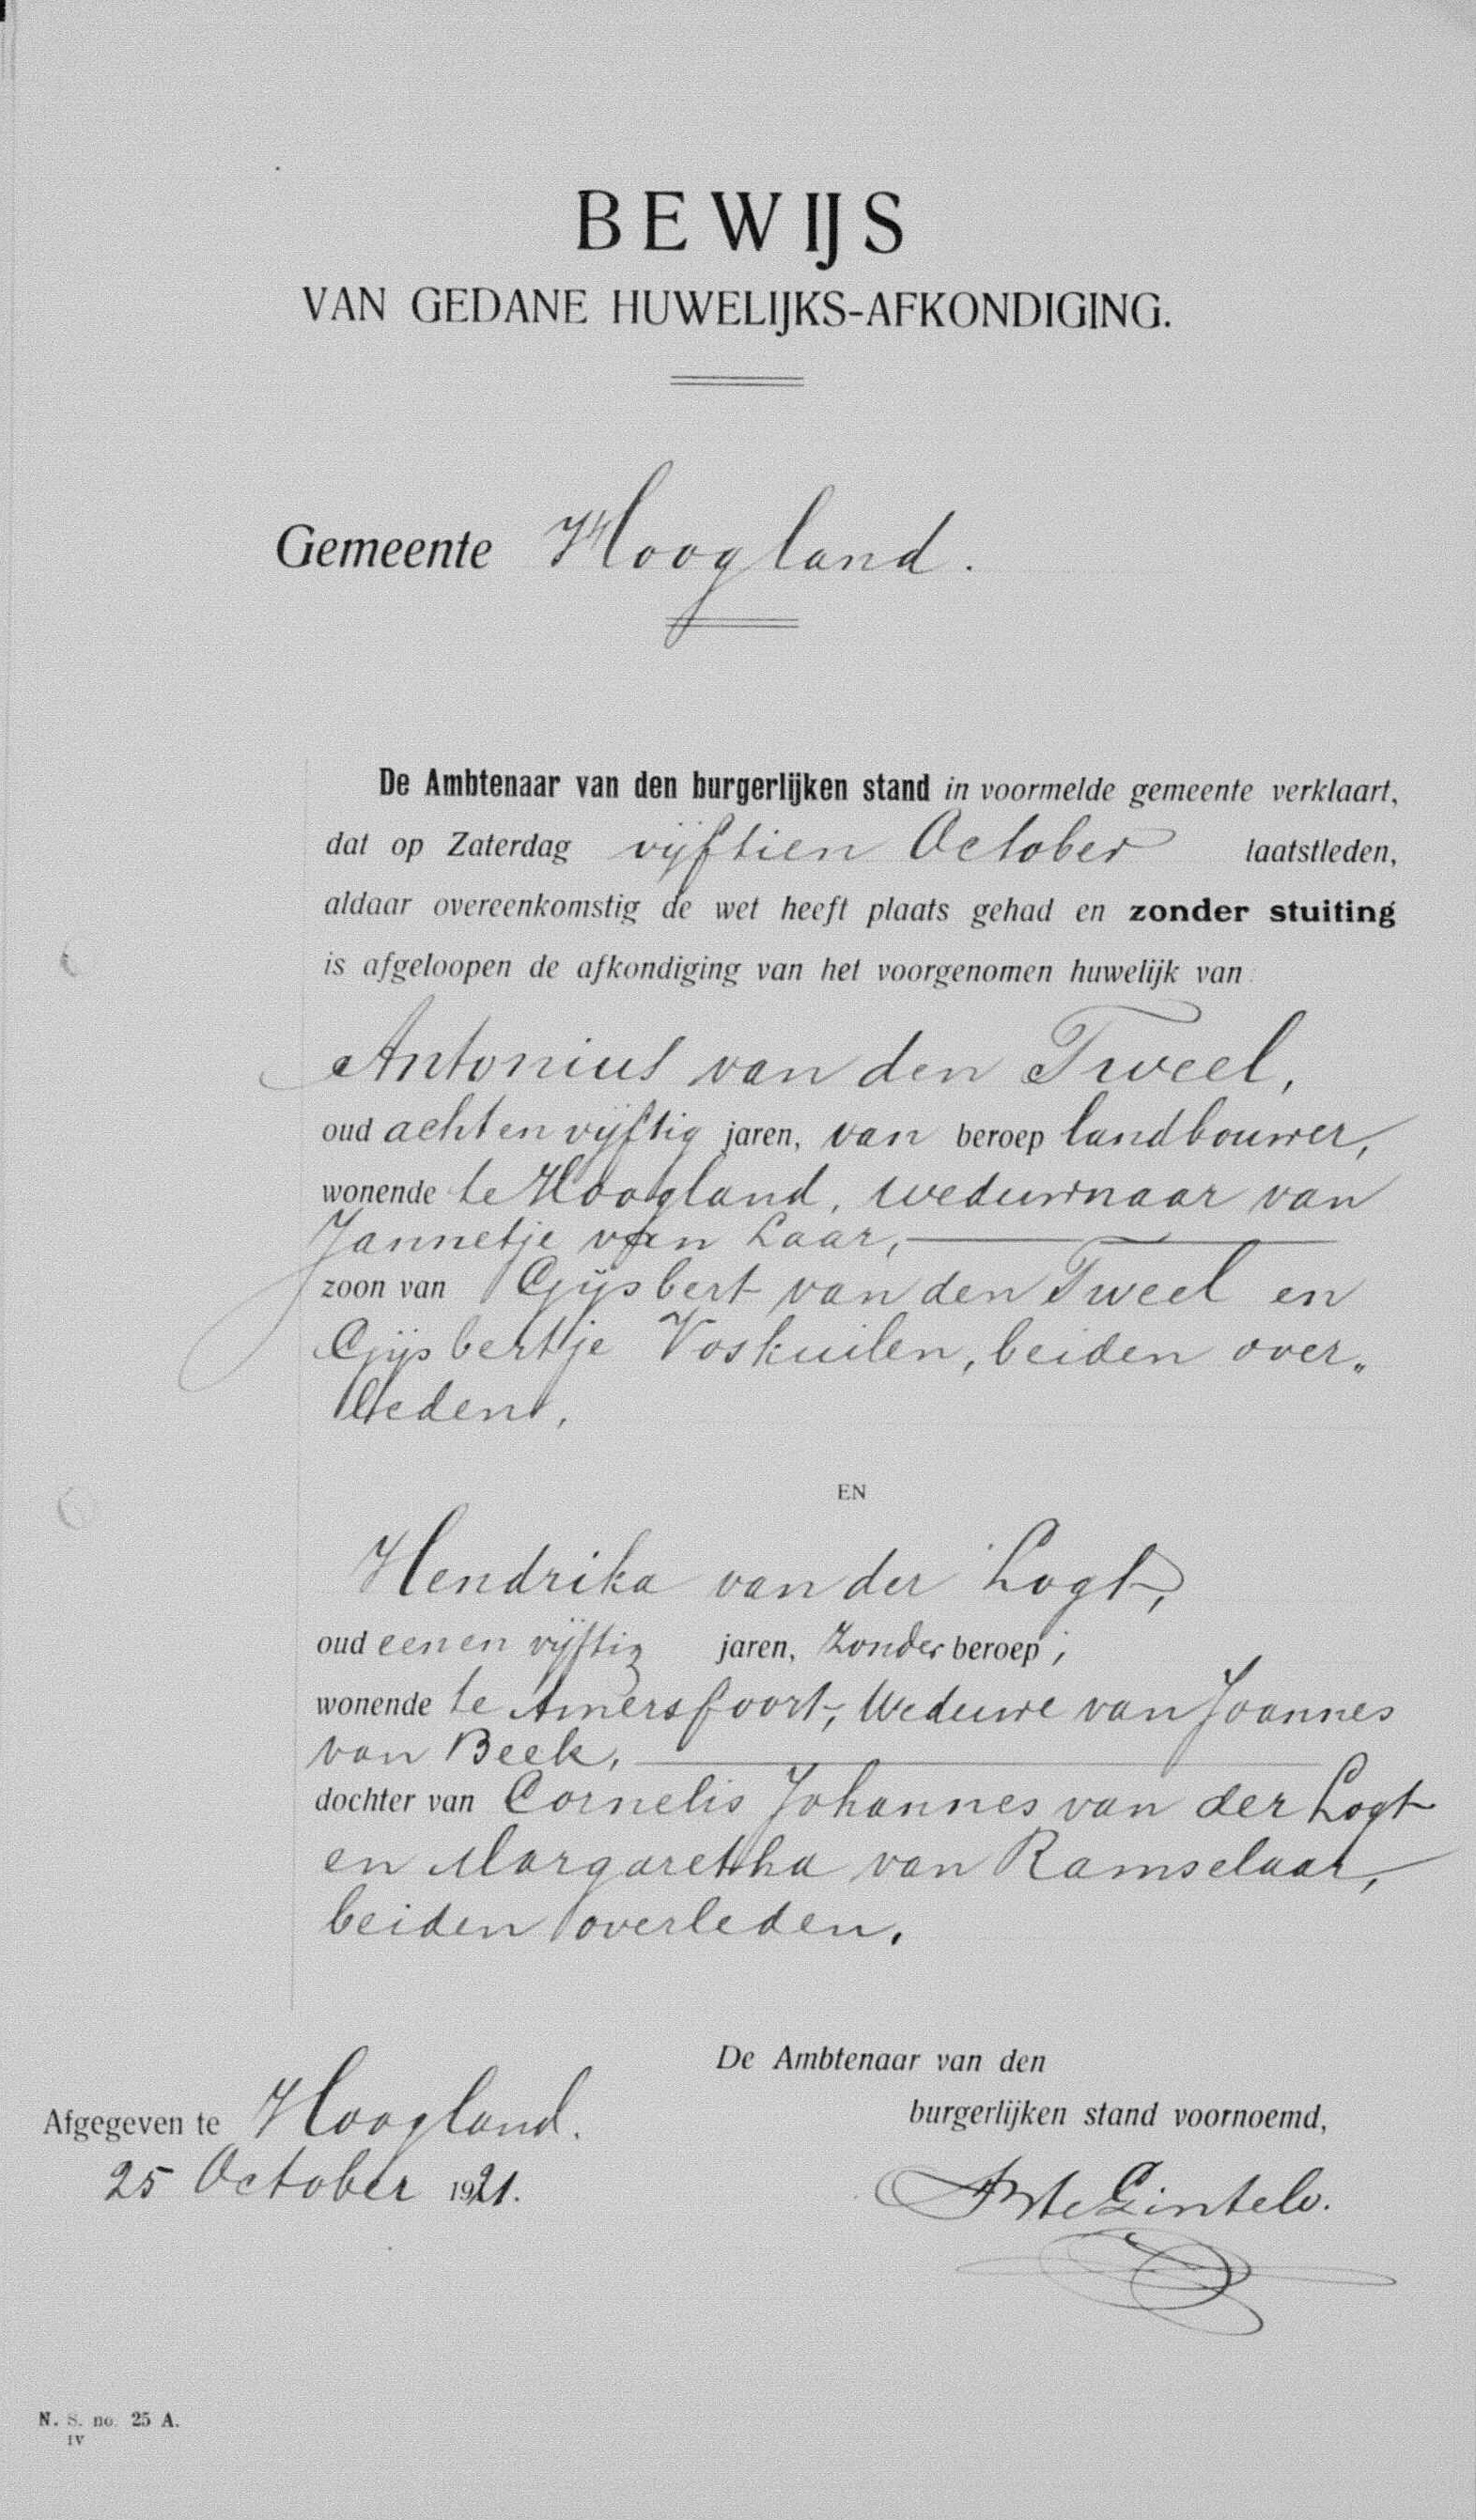 BEWIJS
VAN GEDANE HUWELIJKS-AFKONDIGING.
Gemeente Hoogland.
De Ambtenaar van den burgerlijken stand in voormelde gemeente verklaart,
dat op Zaterdag vijftien October laatstleden,
aldaar overeenkomstig de wet heeft plaats gehad en zonder stuiting
is afgeloopen de afkondiging van het voorgenomen huwelijk van:
Antonius van den Tweel,
oud acht en vijftig jaren, van beroep landbouwer,
wonende te Hoogland, weduwnaar van
Jannetje van Laar,
zoon van Gijsbert van den Tweel en
Gijsbertje Voskuilen, beiden over„
leden,
EN
Hendrika van der Logt,
oud een en vijftig jaren, zonder beroep,
wonende te Amersfoort, Weduwe van Joannes
van Beek,
dochter van Cornelis Johannes van der Logt
en Margaretha van Ramselaar,
beiden overleden.
De Ambtenaar van den
burgerlijken stand voornoemd,
Afgegeven te Hoogland.
25 October 1921.
N. S. no. 25 A.
IV